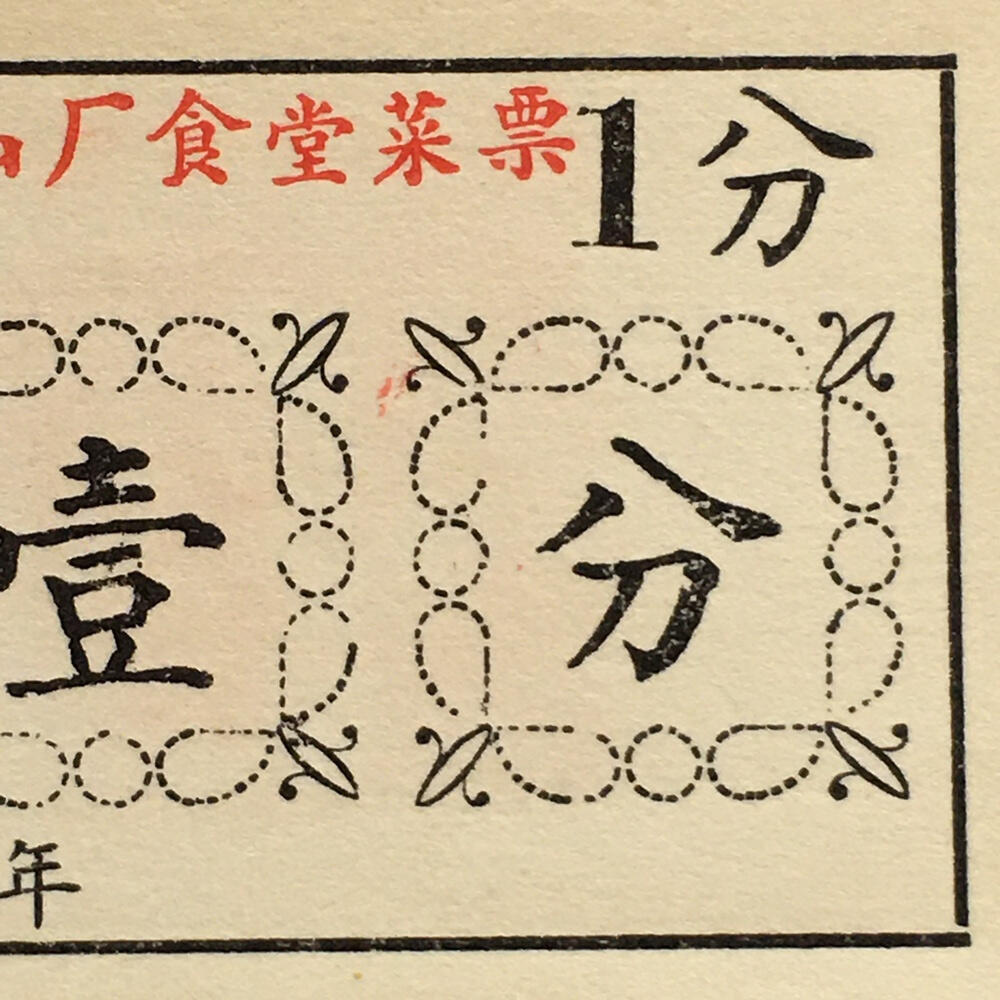 厂食堂菜票 1分
壹 分
年